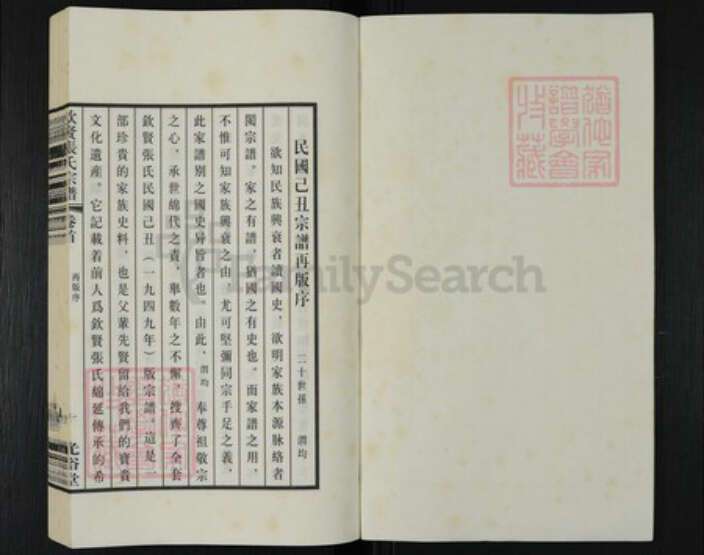 民國己丑宗譜再版序
二十世孫 潤均
欲知民族興衰者讀國史，欲明家族本源脉絡者
閱宗譜。家之有譜，猶國之有史也。而家譜之用，
不惟可知家族興衰之由，尤可堅彌同宗手足之義，
此家譜別之國史异旨者也。由此，潤均奉尊祖敬宗
之心，承世綿代之責，舉數年之不懈，搜齊了全套
欽賢張氏民國己丑（一九四九年）版宗譜。這是一
部珍貴的家族史料，也是父輩先賢留給我們的寶貴
文化遺產。它記載着前人爲欽賢張氏綿延傳承的希
欽賢張氏宗譜 卷首
再版序
光裕堂
譜學會
特藏
FamilySearch